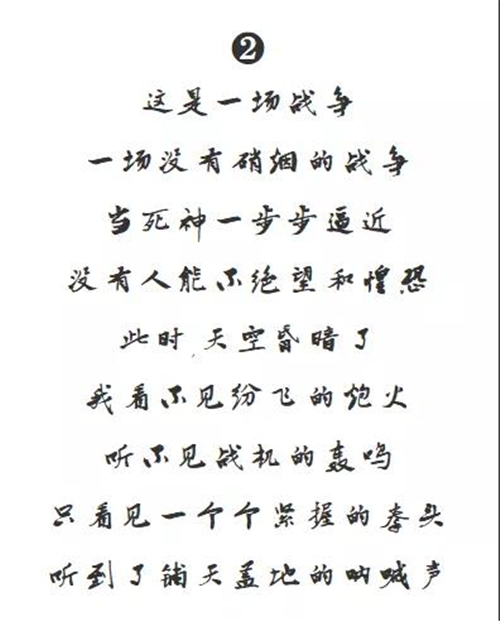 2
这是一场战争
一场没有硝烟的战争
当死神一步步逼近
没有人能不绝望和惶恐
此时,天空昏暗了
我看不见纷飞的炮火
听不见战机的轰鸣
只看见一个个紧握的拳头
听到了铺天盖地的呐喊声